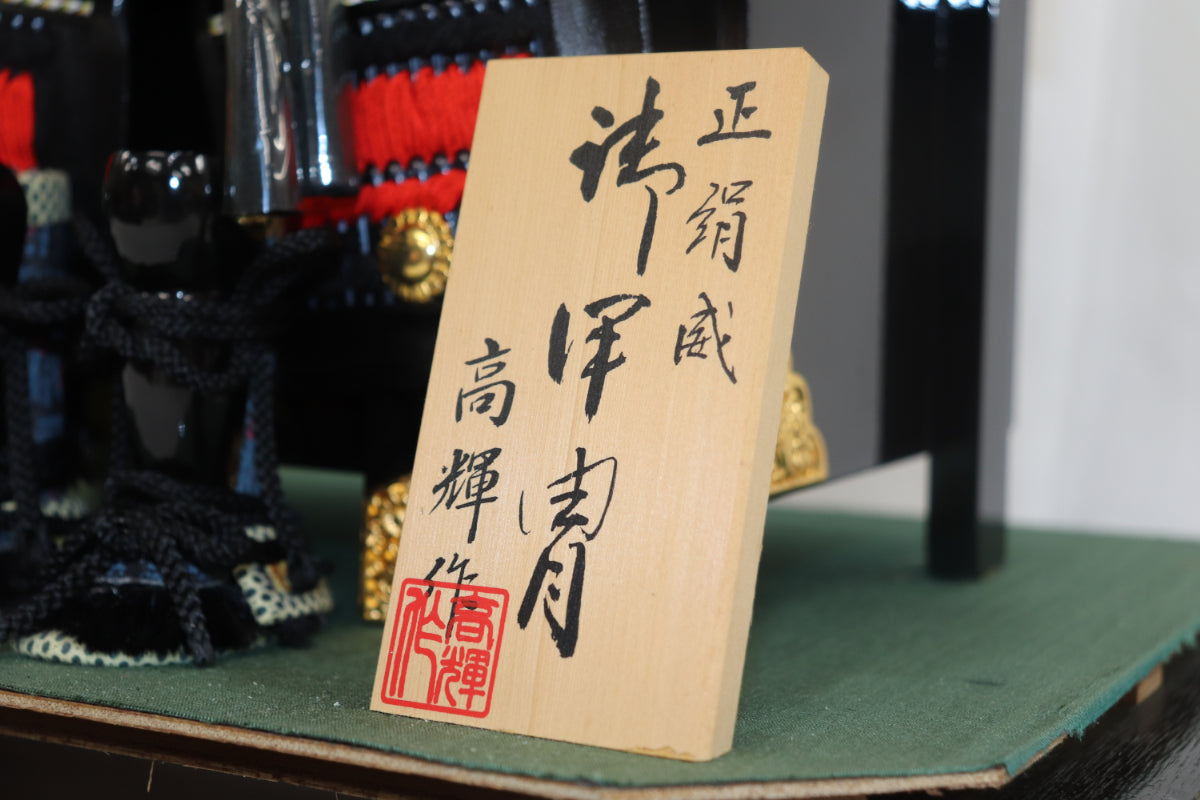 正絹威
御甲冑
高輝作
高輝作